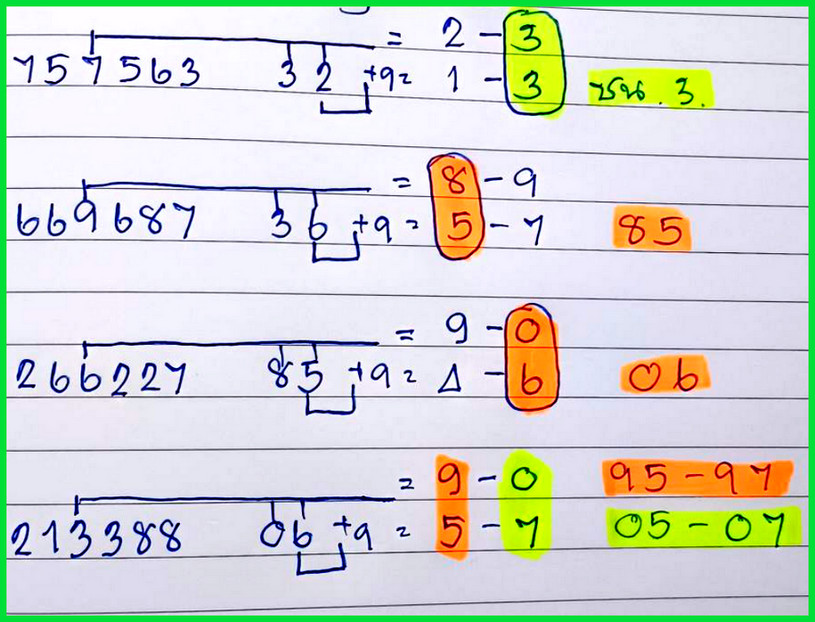 = 2 - 3
757563 32 +9= 1 - 3 ชน. 3.
= 8 - 9
669687 36 +9= 5 - 7 85
= 9 - 0
266227 85 +9= 4 - 6 06
= 9 - 0 95-97
213388 06 +9= 5 - 7 05-07